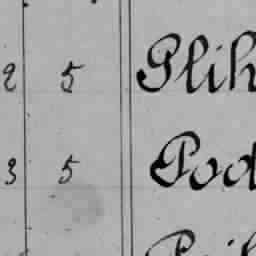 2 5 Plih
3 5 Pod